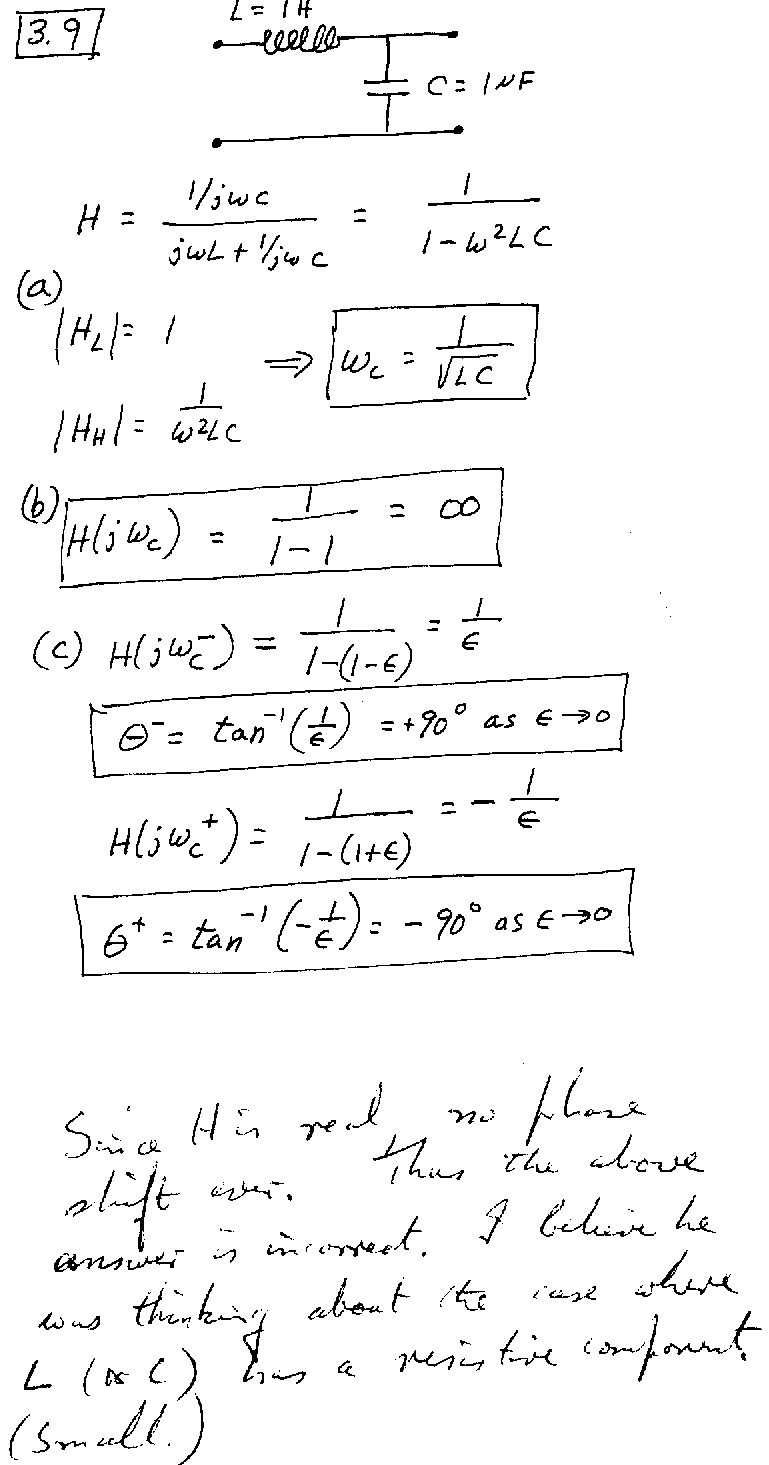 L = 1H
3.9
C = 1μF
H = 1/jωC / (jωL + 1/jωC) = 1 / (1 - ω²LC)
(a)
|H_L| = 1
⇒ ω_c = 1/√LC
|H_H| = 1/ω²LC
(b) H(jω_c) = 1/(1-1) = ∞
(c) H(jω_c⁻) = 1/(1-(1-ϵ)) = 1/ϵ
θ⁻ = tan⁻¹(1/ϵ) = +90° as ϵ→0
H(jω_c⁺) = 1/(1-(1+ϵ)) = -1/ϵ
θ⁺ = tan⁻¹(-1/ϵ) = -90° as ϵ→0
Since H is real, no phase
shift ever. Thus the above
answer is incorrect. I believe he
was thinking about the case where
L (or C) has a resistive component.
(small.)